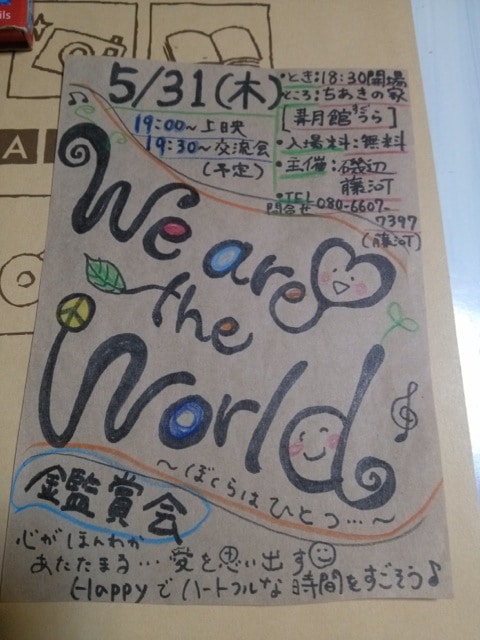 5/31(木)
・とき:18:30開場
ところ:ちあきの家
[昇月館うら]
・入場料:無料
・主催:磯辺
藤河
・TEL
問合せ 080-6607-
7397
(藤河)
19:00~上映
19:30~交流会
(予定)
We are
the
World
~ぼくらはひとつ…~
鑑賞会
心がほんわか
あたたまる…愛を思い出す
Happyでハートフルな時間をすごそう♪
ils
A